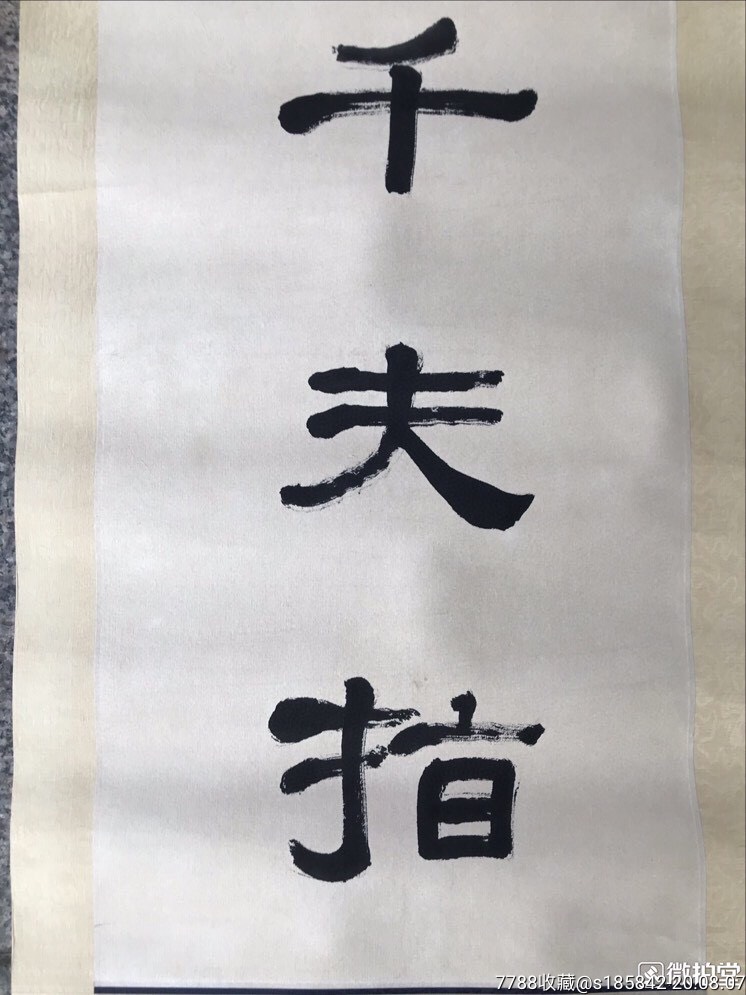 千夫指
微拍堂
7788收藏@s185842 20.08.07